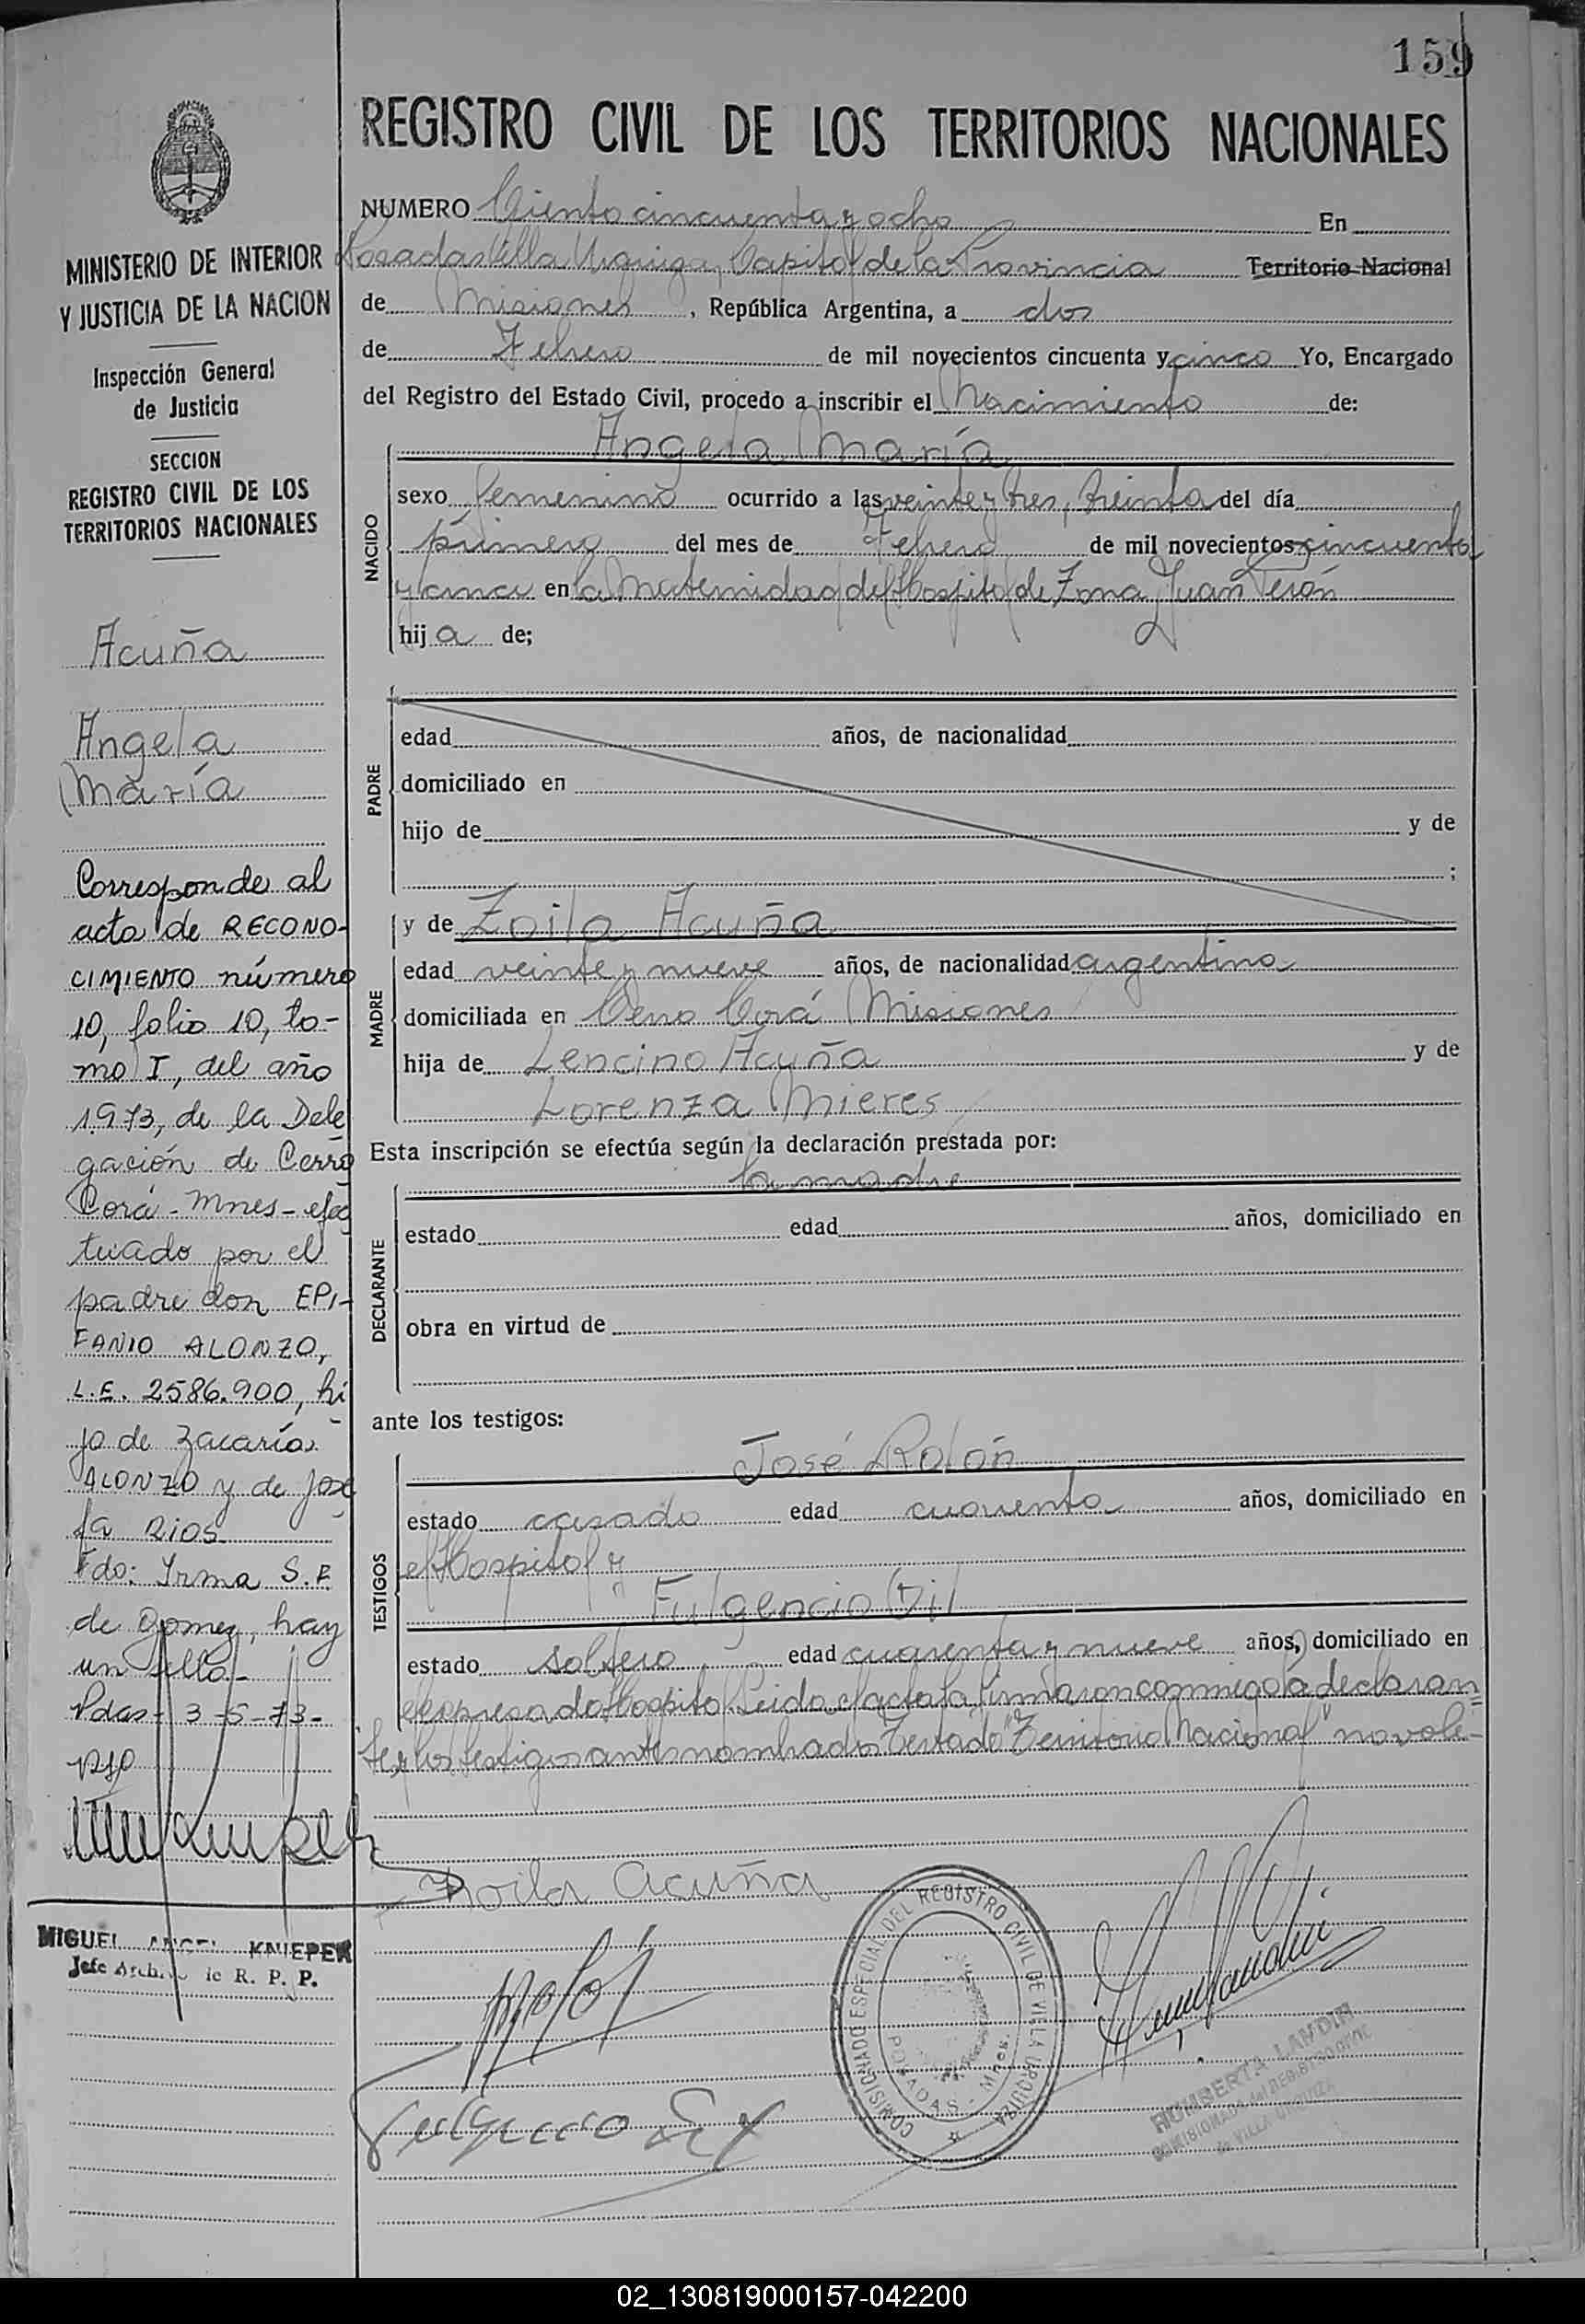 159
REGISTRO CIVIL DE LOS TERRITORIOS NACIONALES
NUMERO Ciento cincuenta y ocho En
Posadas Villa Urquiza, Capital de la Provincia Territorio Nacional
de Misiones, República Argentina, a dos
de Febrero de mil novecientos cincuenta y cinco Yo, Encargado
del Registro del Estado Civil, procedo a inscribir el Nacimiento de:
Angela María
NACIDO
sexo femenino ocurrido a las veinte y tres, treinta del día
primero del mes de Febrero de mil novecientos cincuenta
y cinco en la Maternidad del Hospital de Zona Juan Perón
hija de;
PADRE
edad años, de nacionalidad
domiciliado en
hijo de y de
;
y de Zoila Acuña
MADRE
edad veinte y nueve años, de nacionalidad argentina
domiciliada en Cerro Corá Misiones
hija de Lencino Acuña y de
Lorenza Mieres
Esta inscripción se efectúa según la declaración prestada por:
la madre
DECLARANTE
estado edad años, domiciliado en
obra en virtud de
ante los testigos:
José Rolón
TESTIGOS
estado casado edad cuarenta años, domiciliado en
el Hospital y
Fulgencio
estado soltero edad cuarenta y nueve años, domiciliado en
el expresado Hospital Leida el acta la firmaron conmigo la declaran=
te y los testigos antes nombrados Testado "Territorio Nacional" no vale-
Zoila Acuña
COMISIONADO ESPECIAL DEL REGISTRO CIVIL DE VILLA URQUIZA
POSADAS - Mnes.
HUMBERTA LANDIN
COMISIONADA del REGISTRO CIVIL
de VILLA URQUIZA
MINISTERIO DE INTERIOR
Y JUSTICIA DE LA NACION
Inspección General
de Justicia
SECCION
REGISTRO CIVIL DE LOS
TERRITORIOS NACIONALES
Acuña
Angela
María
Corresponde al
acta de RECONO-
CIMIENTO número
10, folio 10, to-
mo I, del año
1973, de la Dele
gación de Cerro
Corá - Mnes - efec
tuado por el
padre don EPI-
FANIO ALONZO,
L.E. 2586.900, hi
jo de Zacarías
ALONZO y de Jose
fa RIOS
Fdo: Irma S. F.
de Gomez, hay
un sello -
Pdas - 3-5-73-
MIGUEL ANGEL KNIEPER
Jefe Archivo de R. P. P.
02_130819000157-042200